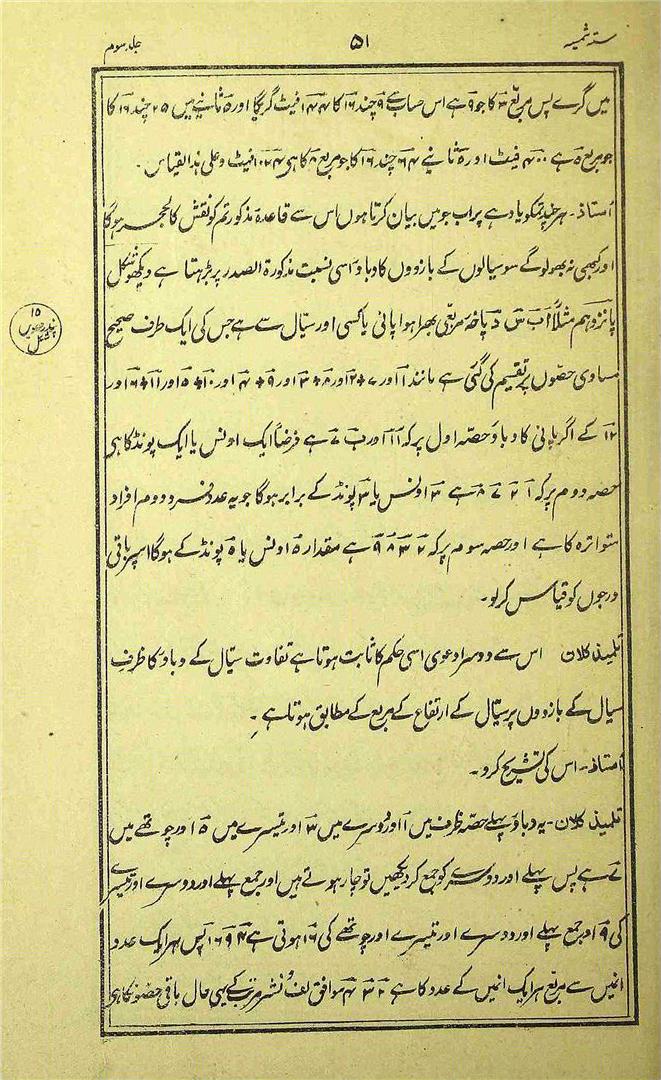 ستہ شمسیہ ۵۱ جلد سوم
میں گرے پس مربع ۳ کا جو ۹ ہے اس حساب سے ۹ چند ۱۶ کا ۱۴۴ فیٹ گریگا اور ۵ ثانیے میں ۲۵ چند ۱۶ کا
جو مربع ۵ ہے ۴۰۰ فیٹ اور ۸ ثانیے ۶۴ چند ۱۶ کا جو مربع ۸ کا ہی ۱۰۲۴ فیٹ وعلی ہذا القیاس۔
اُستاذ۔ ہرچند تمکو یاد ہے پر اب جو میں بیان کرتا ہوں اس سے قاعدہ مذکور تم کو نقش کالحجر ہوگا
اور کبھی نہ بھولو گے سو سیالوں کے بازووں کا دباو اسی نسبت مذکورۃ الصدر پر بڑہتا ہے دیکھو شکل
پانزدہم مثلاً اَ بَ سَ دَ پاخہ مربعی بھرا ہوا پانی یا کسی اور سیّال سے ہے جس کی ایک طرف صحیح
۱۵ پندرھویں شکل
مساوی حصّوں پر تقسیم کی گئی ہے مانند ۱ اور ۷ + ۲ اور ۸ + ۳ اور ۹ + ۴ اور ۱۰ + ۵ اور ۱۱ + ۶ اور
۱۲ کے اگر پانی کا دباو حصّہ اول پر کہ ۱ ا اور ب ۷ ہے فرضاً ایک اونس یا ایک پونڈ کا ہی
حصہ دوم پر کہ ۱ ۲ ۷ ۸ ہے ۳ اونس یا ۳ پونڈ کے برابر ہوگا جو یہ عدد فرد دوم افراد
متواترہ کا ہے اور حصہ سوم پر کہ ۲ ۳ ۸ ۹ ہے مقدار ۵ اونس یا ۵ پونڈ کے ہوگا اسپر باقی
درجوں کو قیاس کر لو۔
تلمیذ کلان اس سے دوسرا دعوی اسی حکم کا ثابت ہوتا ہے تفاوت سیّال کے دباو کا ظرف
سیال کے بازووں پر سیّال کے ارتفاع کے مربع کے مطابق ہوتا ہے۔
اُستاذ۔ اس کی تشریح کرو۔
تلمیذ کلان۔ یہ دباو پہلے حصّہ ظرف میں ۱ اور دوسرے میں ۳ اور تیسرے میں ۵ اور چوتھے میں
۷ ہے پس پہلے اور دوسرے کو جمع کر دیکھیں تو چار ہوتے ہیں اور جمع پہلے اور دوسرے اور تیسرے
کی ۹ اور جمع پہلے اور دوسرے اور تیسرے اور چوتھے کی ۱۶ ہوتی ہے ۴ ۹ ۱۶ پس ہر ایک عدد
انمیں سے مربع ہر ایک انمیں کے عدد کا ہے ۲ ۳ ۴ موافق لف و نشر مرتب کے یہی حال باقی حصّونکا ہی